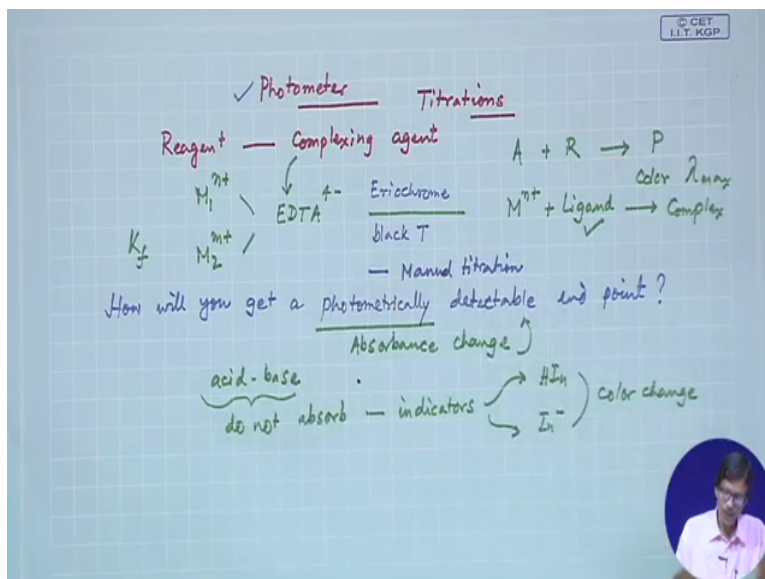 © CET
I.I.T. KGP
✓ Photometer Titrations
Reagent — Complexing agent
A + R → P
Color λmax
M₁ⁿ⁺
EDTA⁴⁻
Eriochrome
black T
Mⁿ⁺ + Ligand → Complex
✓
K_f
M₂ᵐ⁺
— Manual titration
How will you get a photometrically detectable end point?
Absorbance change
acid-base
do not absorb — indicators
HIn
In⁻
Color change